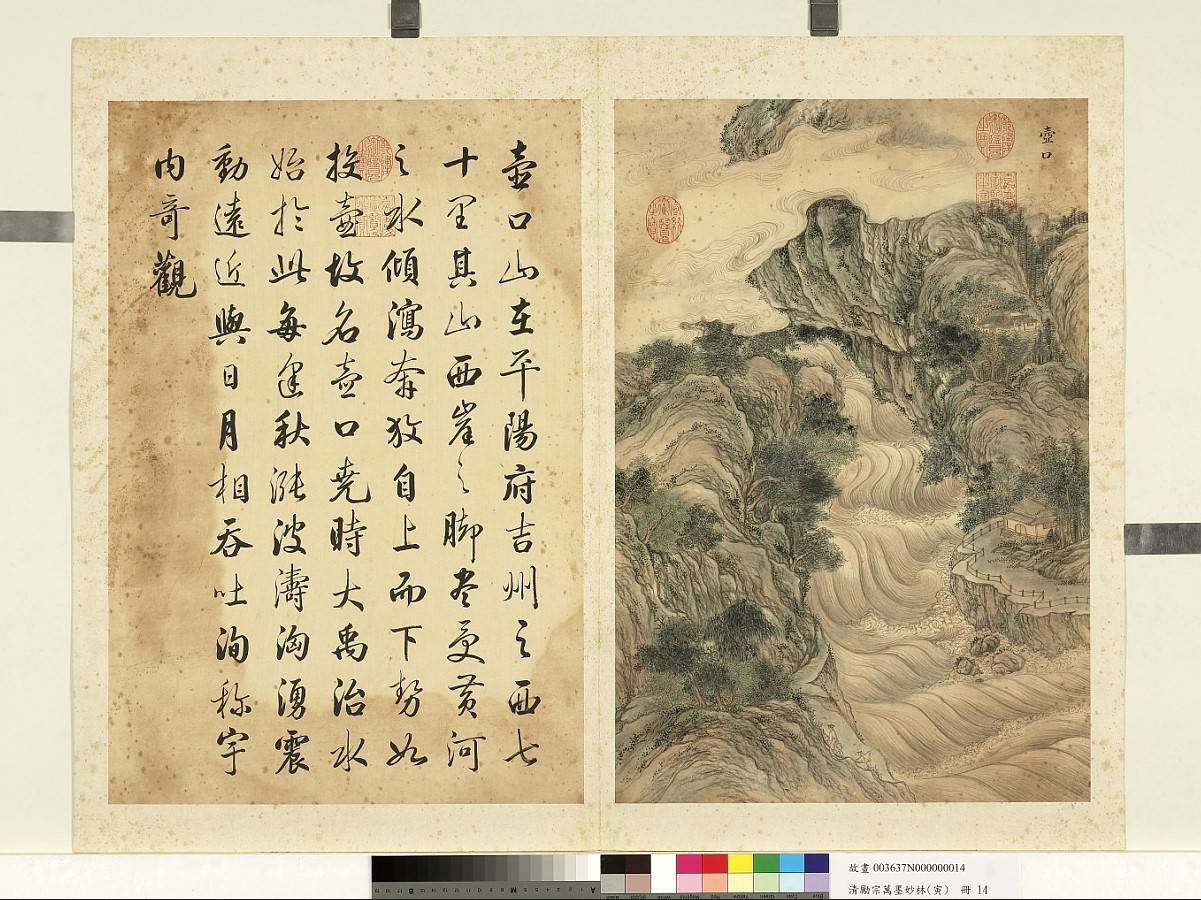 壺口
壺口山在平陽府吉州之西七
十里其山西崖之脚盡受黃河
之水傾瀉奔放自上而下勢如
投壺故名壺口堯時大禹治水
始於此每逢秋漲波濤洶湧震
動遠近與日月相吞吐洵称宇
内奇觀
故畫 003637N000000014
清勵宗萬墨妙林(寅) 冊 14